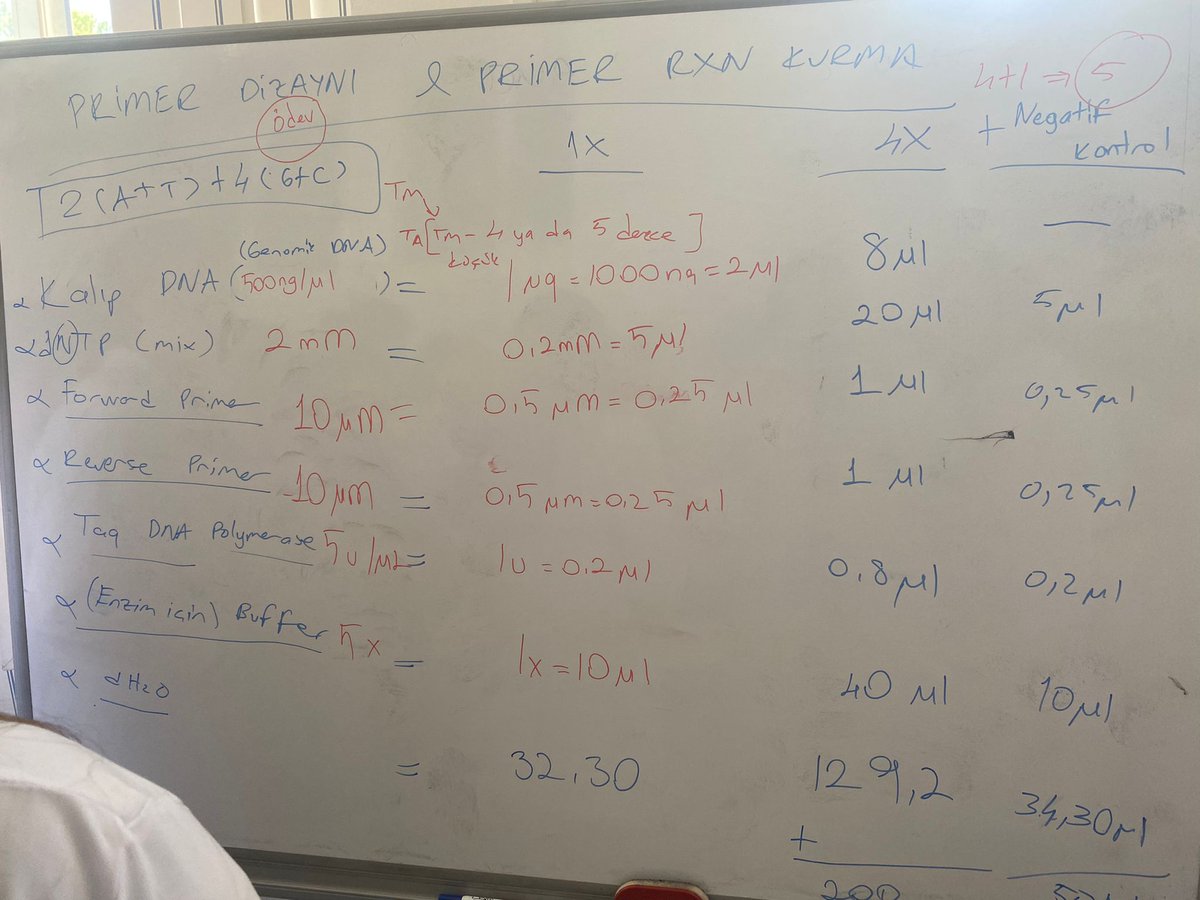 PRİMER DİZAYNI & PRİMER RXN KURMA
4+1 ⇒ 5
ödev
2(A+T)+4(G+C)
1X
4X
+ Negatif Kontrol
TM
TA[TM - 4 ya da 5 derece]
(Genomik DNA)
α Kalıp DNA (500ng/µl) = 1 µg = 1000ng = 2µl 8µl —
α dNTP (mix) 2mM = 0.2mM = 5µl 20µl 5µl
α Forward Primer 10µM = 0,5 µm = 0,25 µl 1 µl 0,25µl
α Reverse Primer 10µm = 0,5 µm = 0,25 µl 1 µl 0,25µl
α Taq DNA Polymerase 5u/µL = 1u = 0.2µl 0.8µl 0,2µl
α (Enzim için) Buffer 5x = 1x = 10µl 40 µl 10µl
α dH2O = 32.30 129,2 34,30µl
+
200